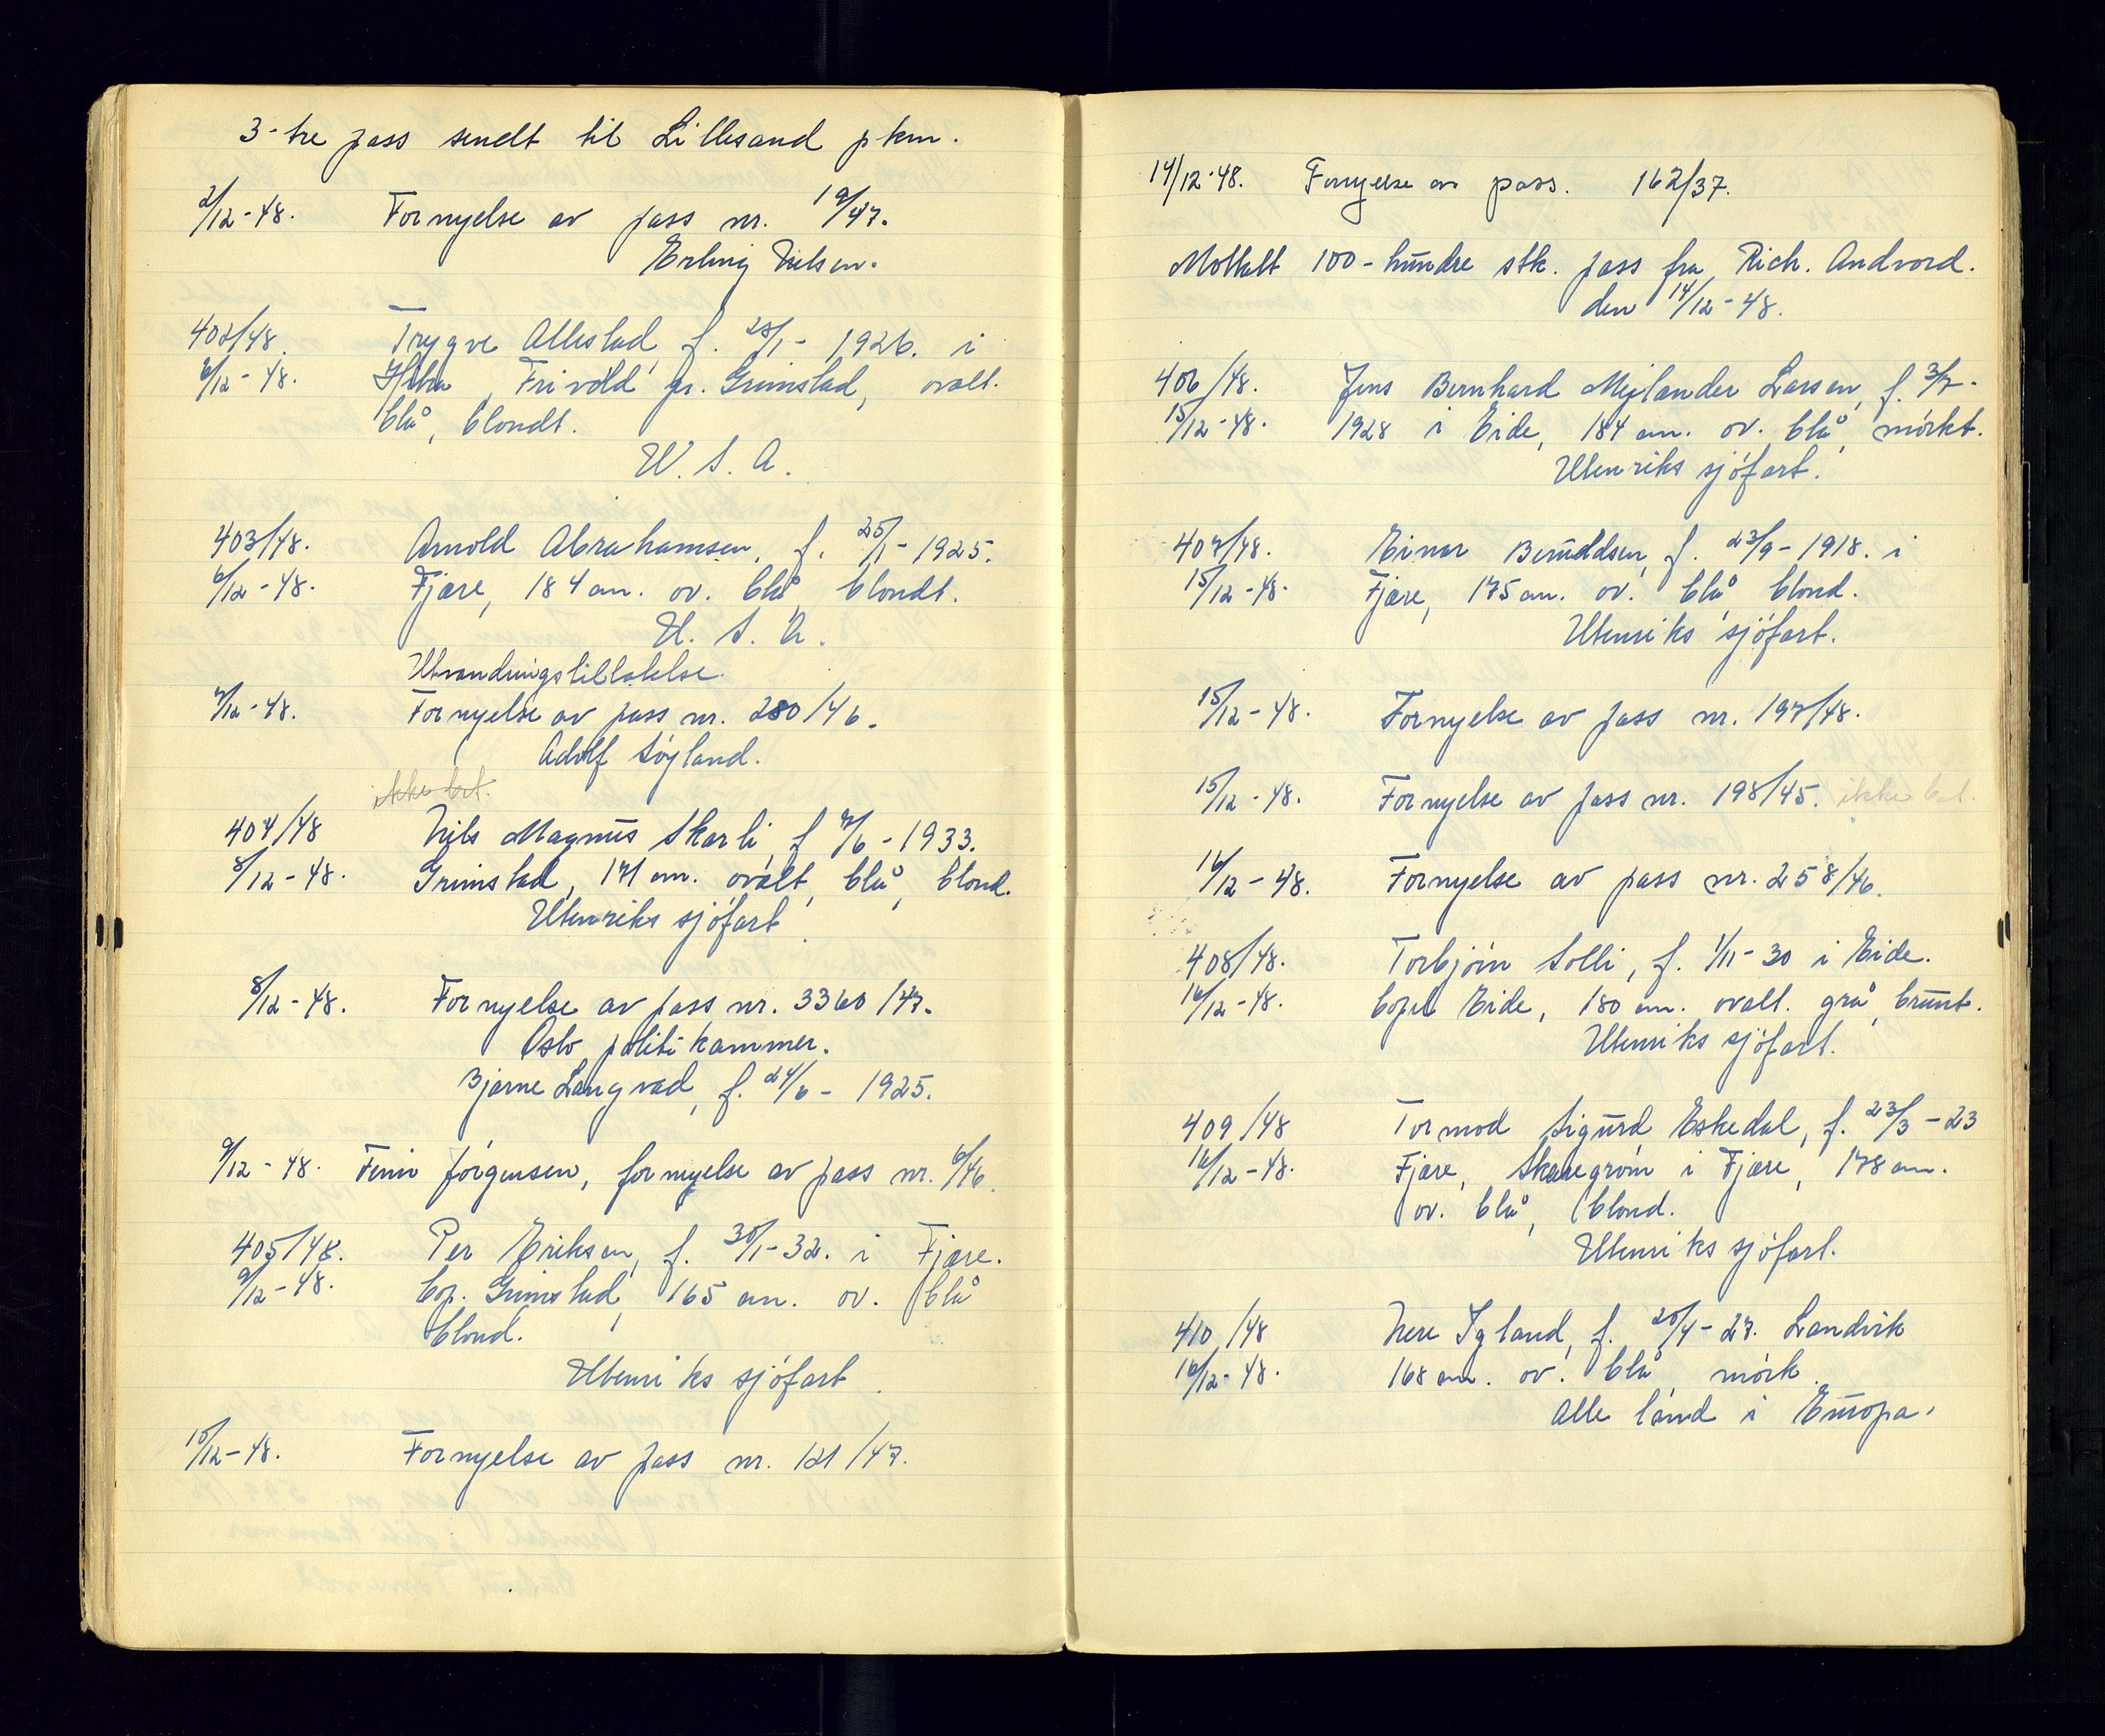 3-tre pass sendt til Lillesand pkm.
2/12-48. Fornyelse av pass nr. 19/47.
Erling Nilsen.
402/48. Trygve Allestad, f. 28/1-1926. i
6/12-48. Frivold pr. Grimstad, ovalt.
blå, blondt.
U. S. A.
403/48. Arnold Abrahamsen, f. 25/1-1925.
6/12-48. Fjære, 184 cm. ov. blå, blondt.
U. S. A.
Utvandringstillatelse.
7/12-48. Fornyelse av pass nr. 280/46.
Adolf Søyland.
ikke bet.
404/48 Nils Magnus Skarli, f 7/6-1933.
8/12-48. Grimstad, 171 cm. ovalt, blå, blond.
Utenriks sjöfart.
8/12-48. Fornyelse av pass nr. 3360/47.
Oslo politikammer.
Bjarne Langvad, f. 24/6-1925.
9/12-48. Finn Jörgensen, fornyelse av pass nr. 6/46.
405/48. Per Eriksen, f. 30/1-32. i Fjære.
9/12-48. bop. Grimstad, 165 cm. ov. blå
blond.
Utenriks sjöfart.
10/12-48. Fornyelse av pass nr. 121/47.
14/12-48. Fornyelse av pass. 162/37.
Mottatt 100-hundre stk. pass fra Rich. Andvord.
den 14/12-48.
406/48. Jens Bernhard Mejlander Larsen, f. 3/7-
15/12-48. 1928 i Eide, 184 cm. ov. blå, mörkt.
Utenriks sjöfart.
407/48. Einar Beruldsen, f. 23/9-1918. i
15/12-48. Fjære, 175 cm. ov. blå blond.
Utenriks sjöfart.
15/12-48. Fornyelse av pass nr. 197/48.
15/12-48. Fornyelse av pass nr. 198/45. ikke bet.
16/12-48. Fornyelse av pass nr. 258/46.
408/48. Torbjörn Solli, f. 1/11-30 i Eide.
16/12-48. bopel Eide, 180 cm. ovalt. grå, brunt.
Utenriks sjöfart.
409/48 Tormod Sigurd Eskedal, f. 23/3-23
16/12-48. Fjære, Skaregröm i Fjære, 178 cm.
ov. blå, blond.
Utenriks sjöfart.
410/48 Igland, f. 20/4-27. Landvik
16/12-48. 168 cm. ov. blå mörk.
Alle land i Europa.